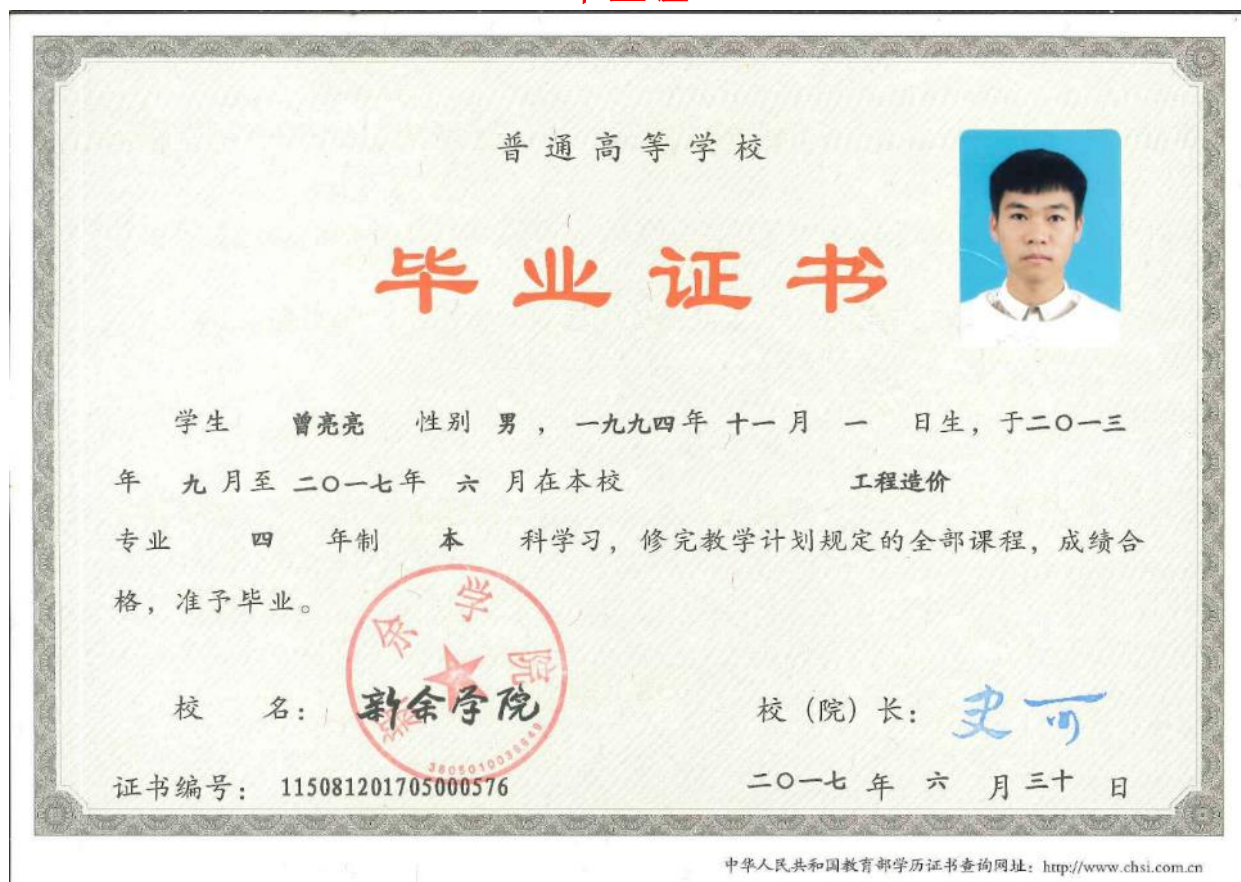 普通高等学校
毕业证书
学生 曾亮亮 性别 男 ， 一九九四年 十一 月 一 日生，于二〇一三
年 九 月至 二〇一七年 六 月在本校 工程造价
专业 四 年制 本 科学习，修完教学计划规定的全部课程，成绩合
格，准予毕业。
新余学院
校 名： 新余学院 校（院）长：
证书编号： 115081201705000576 二〇一七 年 六 月 三十 日
中华人民共和国教育部学历证书查询网址：http://www.chsi.com.cn